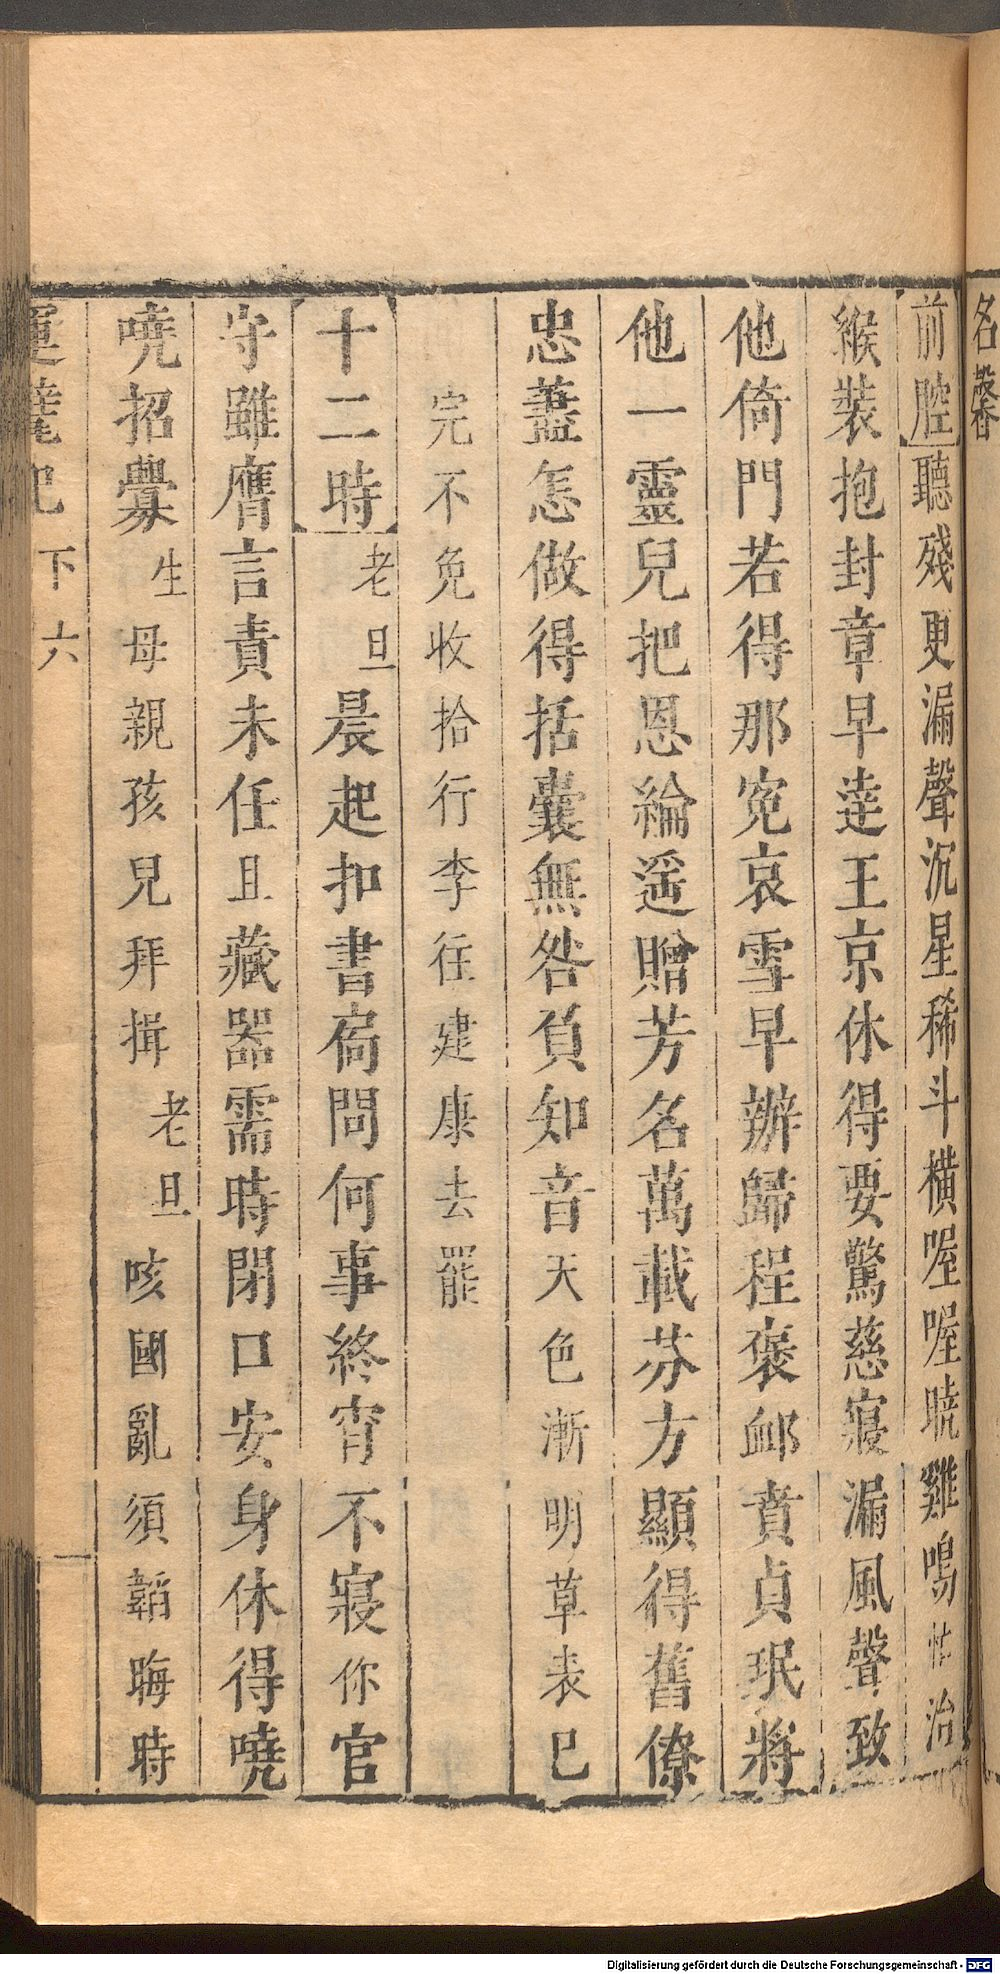 名馨
前腔聽殘更漏聲沉星稀斗橫喔喔曉雞鳴忙治
緱裝抱封章早達王京休得要驚慈寢漏風聲致
他倚門若得那寃哀雪早辦歸程褒卹賁貞珉將
他一靈兒把恩綸遥贈芳名萬載芬方顯得舊僚
忠藎怎做得括囊無咎負知音天色漸明草表已
完不免收拾行李往建康去罷
十二時老旦晨起扣書窗問何事終宵不寢你官
守雖膺言責未任且藏器需時閉口安身休得嘵
嘵招釁生母親孩兒拜揖老旦咳國亂須韜晦時
下六
Digitalisierung gefördert durch die Deutsche Forschungsgemeinschaft - DFG